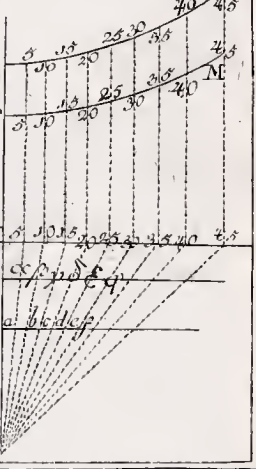 5 10 15 20 25 30 35 40 45
5 10 15 20 25 30 35 40 45
M
5 10 15 20 25 30 35 40 45
α β γ δ ε φ
a b c d e f